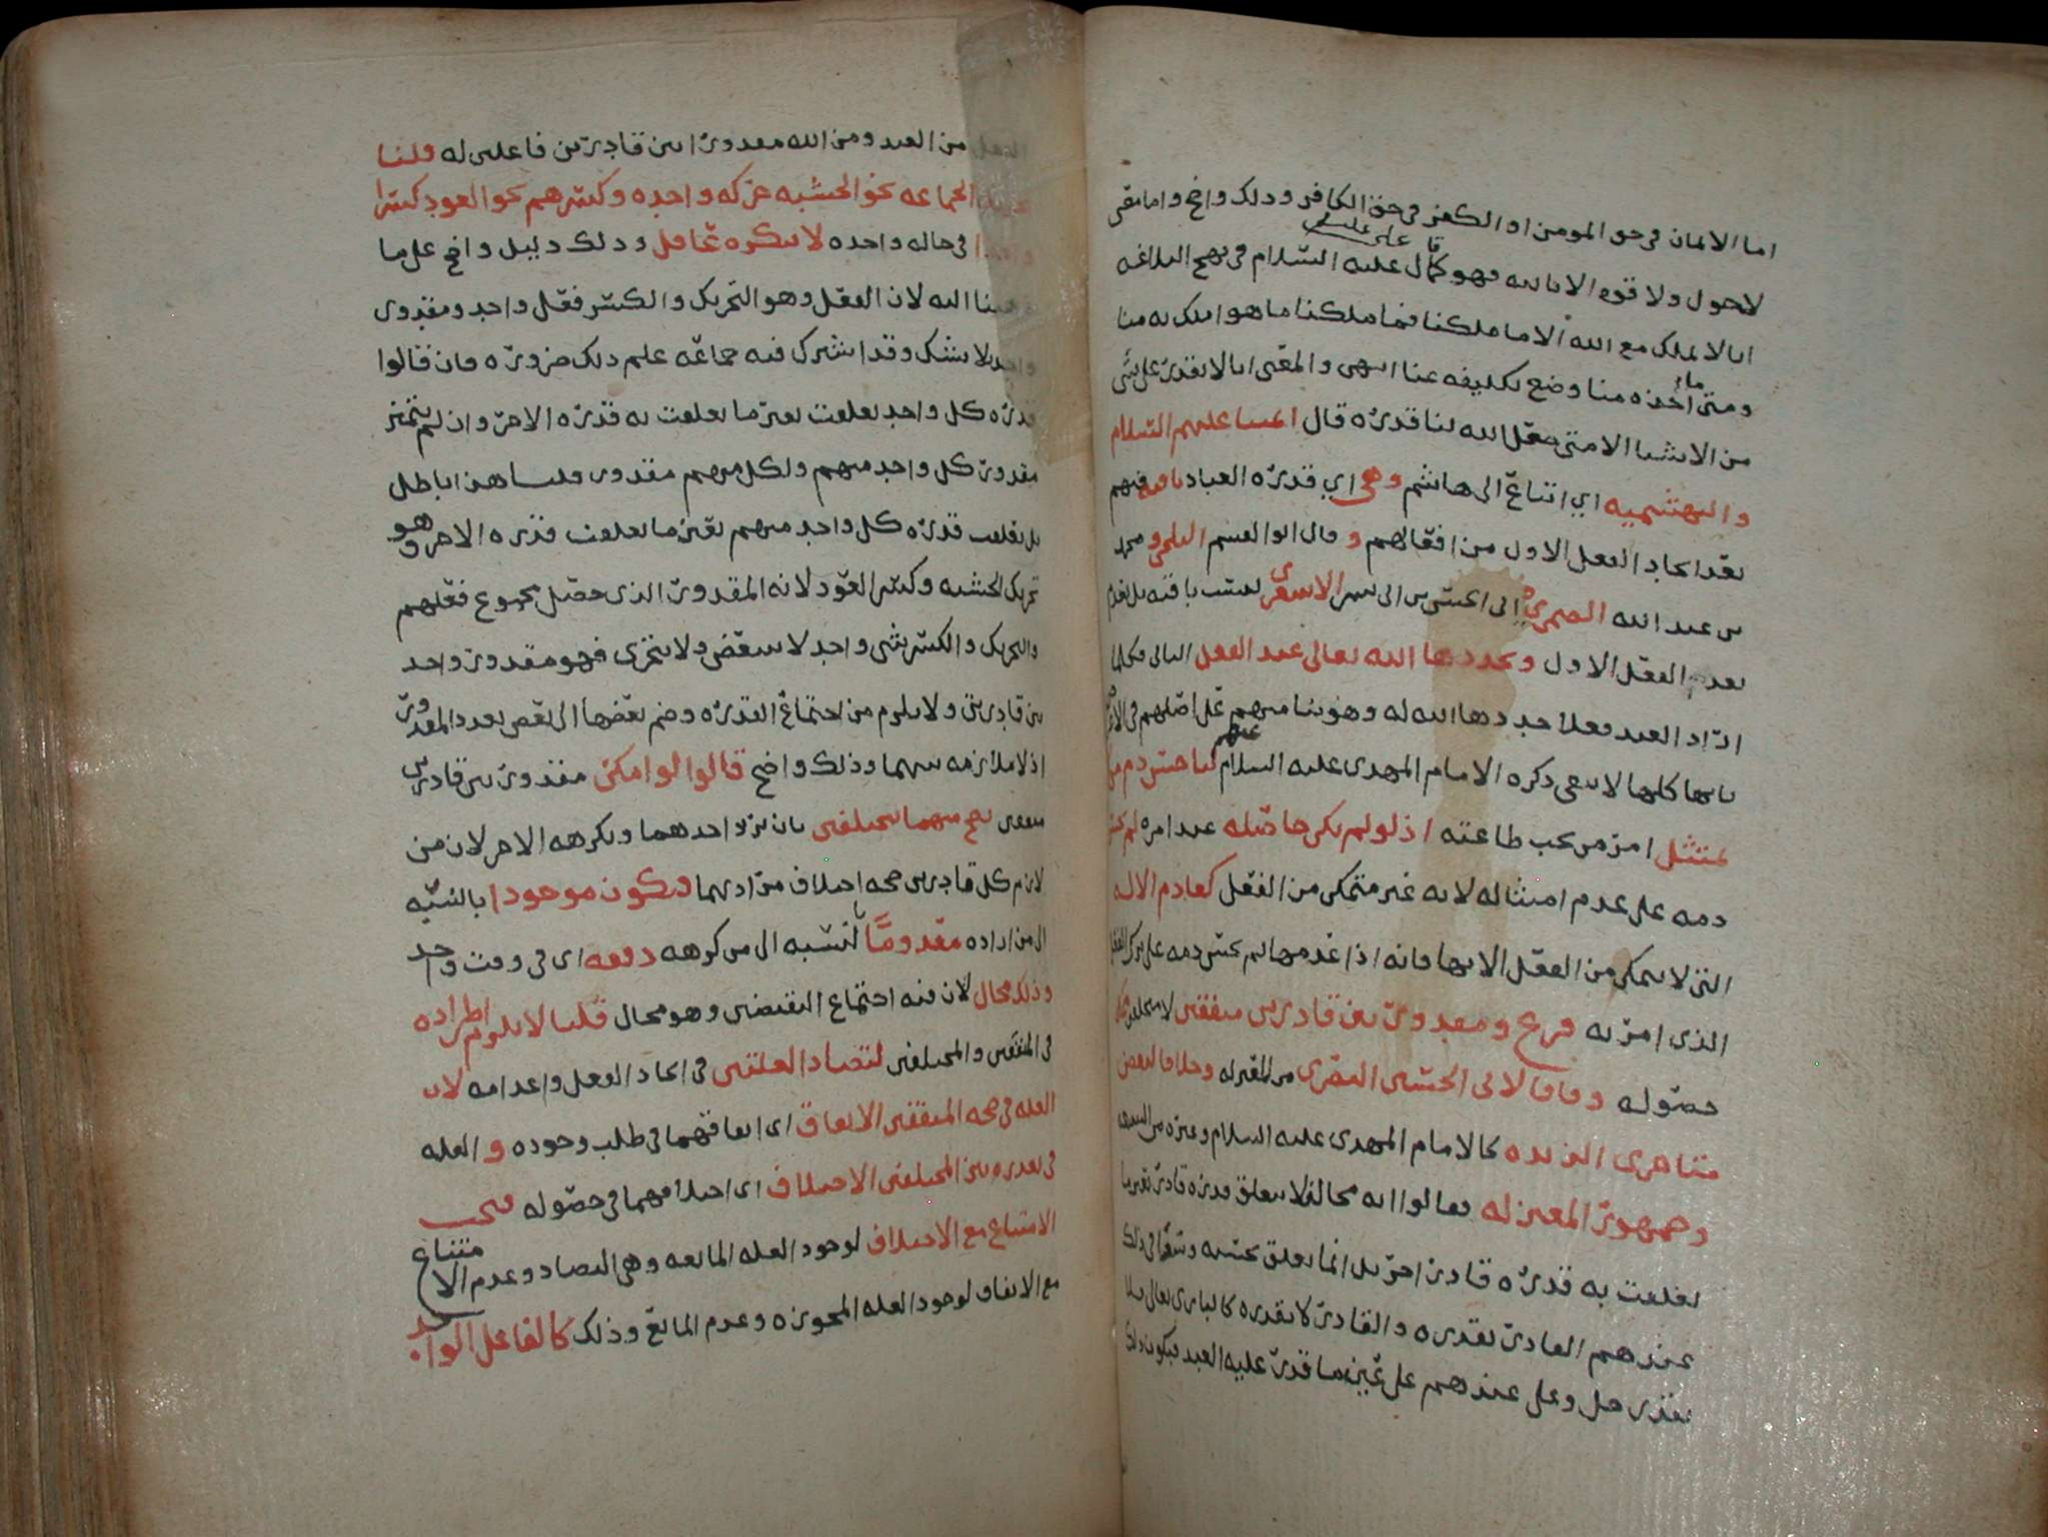 اما الايمان في حق المومن او الكفر في حق الكافر وذلك واضح واما معنى
لا حول ولا قوه الا بالله فهو كما قال على عليه السلام في نهج البلاغه
انا لا نملك مع الله الا ما ملكنا فما ملكنا ما هو املك به منا
ومتى ما اخذه منا وضع تكليفه عنا انتهى والمعنى انا لا نقدر على شي
من الاشيا الا متى جعل الله لنا قدره قال ايمتنا عليهم السلام
والبهشميه اي اتباع ابي هاشم وهي اي قدره العباد باقيه فيهم
بعد ايجاد الفعل الاول من افعالهم و قال ابو القسم البلخي و محمد
بن عبد الله الصيمري وابي الحسن بن ابي بشر الاشعري ليست باقيه بل تعدم
بعدم الفعل الاول ويجددها الله تعالى عند الفعل الثاني فكلما
اراد العبد فعلا جددها الله له وهو بنا منهم على اصلهم في الاعراض
بانها كلها لا تبقى ذكره الامام المهدي عليه السلام عنهم لنا حسن ذم من لم
يمتثل امر من يجب طاعته اذ لو لم يكن حاصله عند امره لم يحسن
ذمه على عدم امتثاله لانه غير متمكن من الفعل كعادم الاله
التي لا يتمكن من الفعل الا بها فانه اذا عدمها لم يحسن ذمه على ترك الفعل
الذي امر به فرع ومقدور بين قادرين متفقين لا مختلفين يمكن
حصوله وفاقا لابي الحسين البصري من المعتزله وخلافا لبعض
متاخري الزيديه كالامام المهدي عليه السلام وغيره من الشيعه
وجمهور المعتزله فقالوا انه محال فلا يتعلق قدره قادر بعين ما
تعلقت به قدره قادر اخر بل انما يتعلق بجنسه وسوا في ذلك
عندهم القادر بقدره والقادر لا بقدره كالباري تعالى فلا
يقدر جل وعلى عندهم على عين ما قدر عليه العبد فيكون ذلك
الفعل من العبد ومن الله مقدورا بين قادرين فاعلين له قلنا
تحريك الجماعه نحو الخشبه حركه واحده وكسرهم نحو العود كسرا
واحدا في حاله واحده لا ينكره عاقل وذلك دليل واضح على ما
ذهبنا اليه لان الفعل وهو التحريك والكسر فعل واحد ومقدور
واحد بلا شك وقد اشترك فيه جماعه علم ذلك ضروره فان قالوا
قدره كل واحد تعلقت بغير ما تعلقت به قدره الاخر وان لم يتميز
مقدور كل واحد منهم ولكل منهم مقدور قلنا هذا باطل
بل تعلقت قدره كل واحد منهم بعين ما تعلقت قدره الاخر وهو
تحريك الخشبه وكسر العود لانه المقدور الذي حصل بمجموع فعلهم
والتحريك والكسر شي واحد لا يتبعض ولا يتجزى فهو مقدور واحد
بين قادرين ولا يلزم من اجتماع القدره وضم بعضها الى بعض تعدد المقدور
اذ لا ملازمه بينهما وذلك واضح قالوا لو امكن مقدور بين قادرين
متفقين لصح منهما مختلفين بان يريد احدهما ويكرهه الاخر لان من
لازم كل قادرين صحه اختلاف مرادهما فيكون موجودا بالنسبه
الى من اراده معدوما بالنسبه الى من كرهه دفعه اي في وقت واحد
وذلك محال لان فيه اجتماع النقيضين وهو محال قلنا لا يلزم اطراده
في المتفقين والمختلفين لتضاد العلتين في ايجاد الفعل واعدامه لان
العله في صحه المتفقين الاتفاق اي اتفاقهما في طلب وجوده و العله
في تعذره بين المختلفين الاختلاف اي اختلافهما في حصوله فيجب
الامتناع مع الاختلاف لوجود العله المانعه وهي التضاد وعدم الامتناع
مع الاتفاق لوجود العله المجوزه وعدم المانع وذلك كالفاعل الواحد